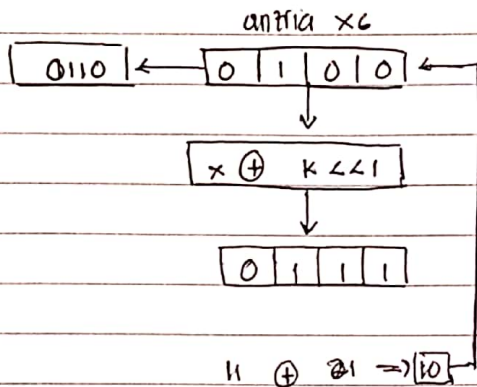 antria x6
0110 ← 0 1 0 0 ←
x ⊕ k <<1
0 1 1 1
11 ⊕ 21 => 10